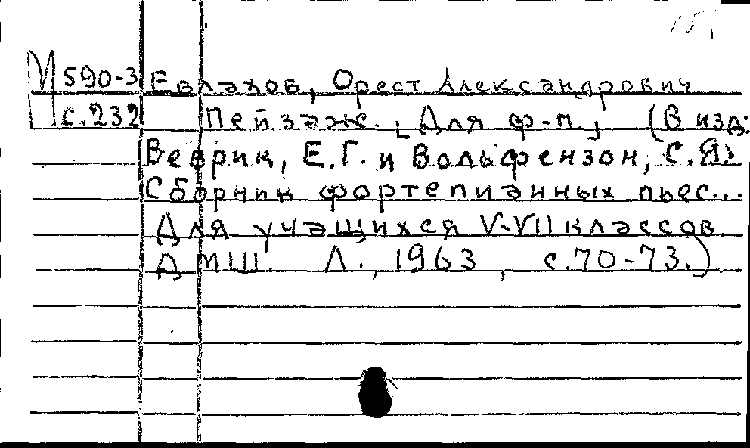 М 590-3 Евлахов, Орест Александрович
П с.232 Пейзаж. [Для ф-п.] (В изд:
Веврик, Е.Г. и Вольфензон, С.Я.
Сборник фортепианных пьес...
Для учащихся V-VII классов
ДМШ. Л., 1963, с.70-73.)